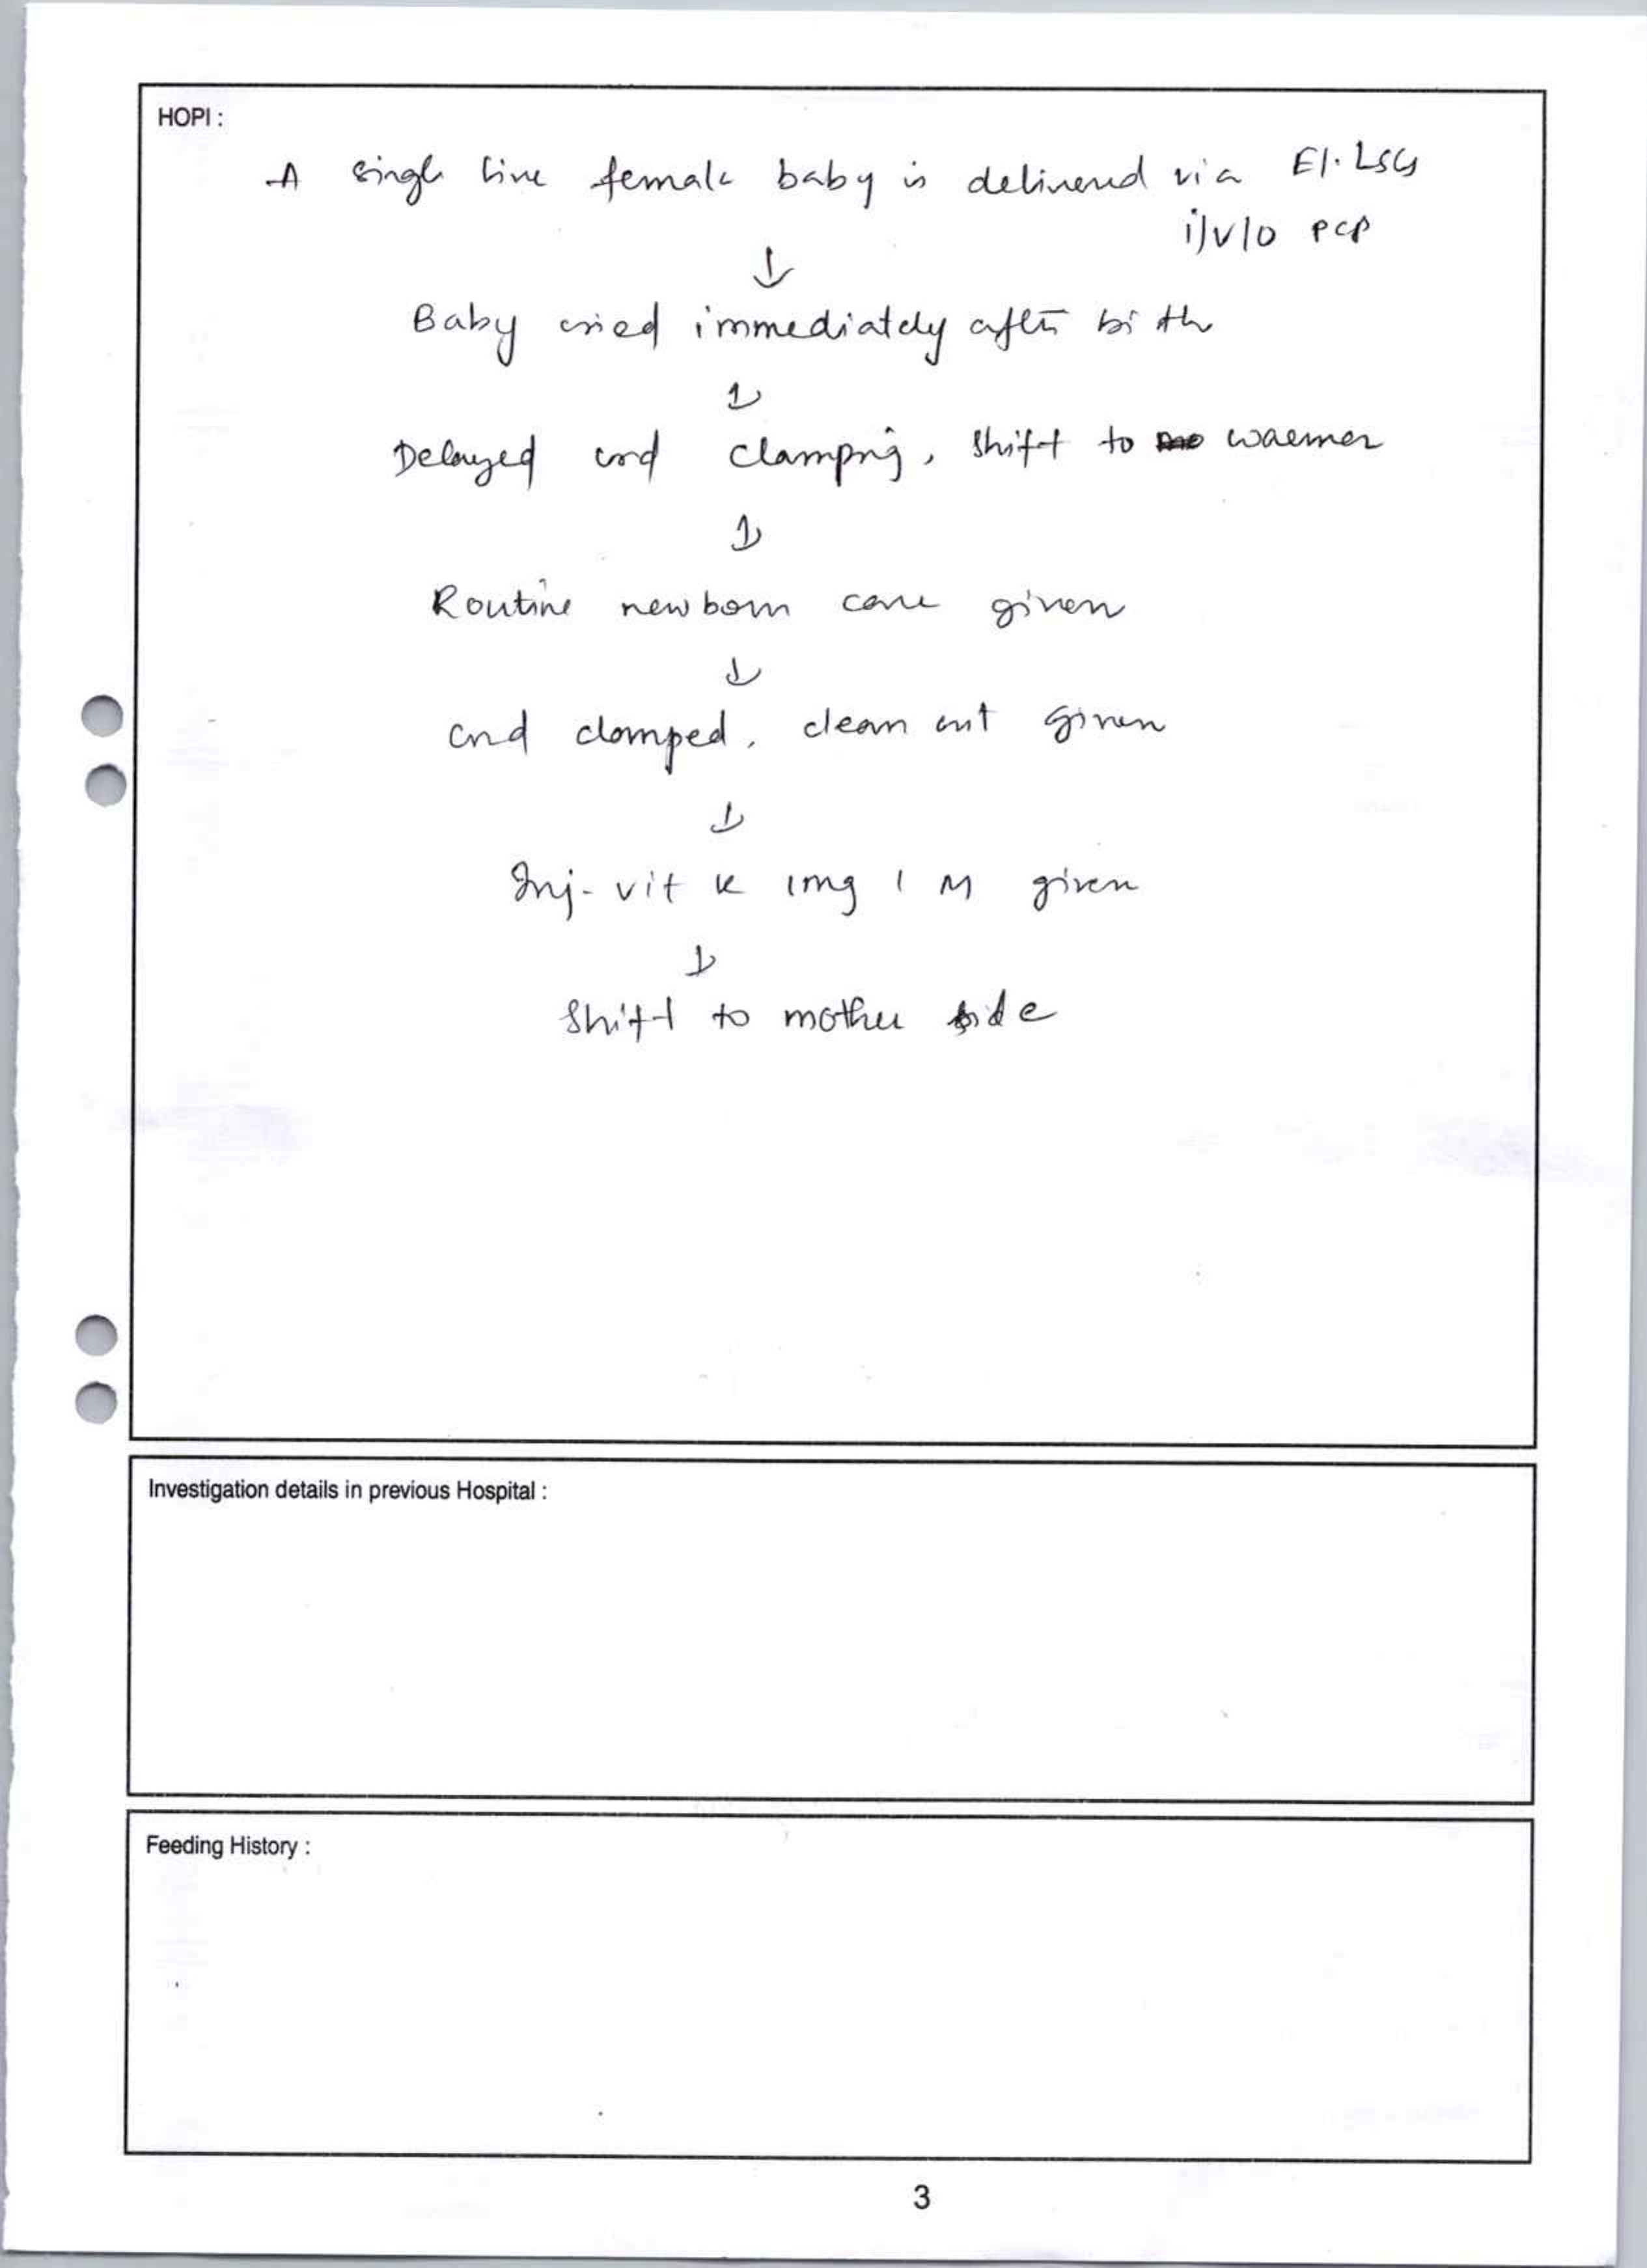 HOPI :
A single live female baby is delivered via El. LSCS
i/v/o PCP
↓
Baby cried immediately after birth
↓
Delayed cord clamping, shift to warmer
↓
Routine newborn care given
↓
cord clamped, clean cut given
↓
Inj- vit K 1mg IM given
↓
Shift to mother side
Investigation details in previous Hospital :
Feeding History :
3